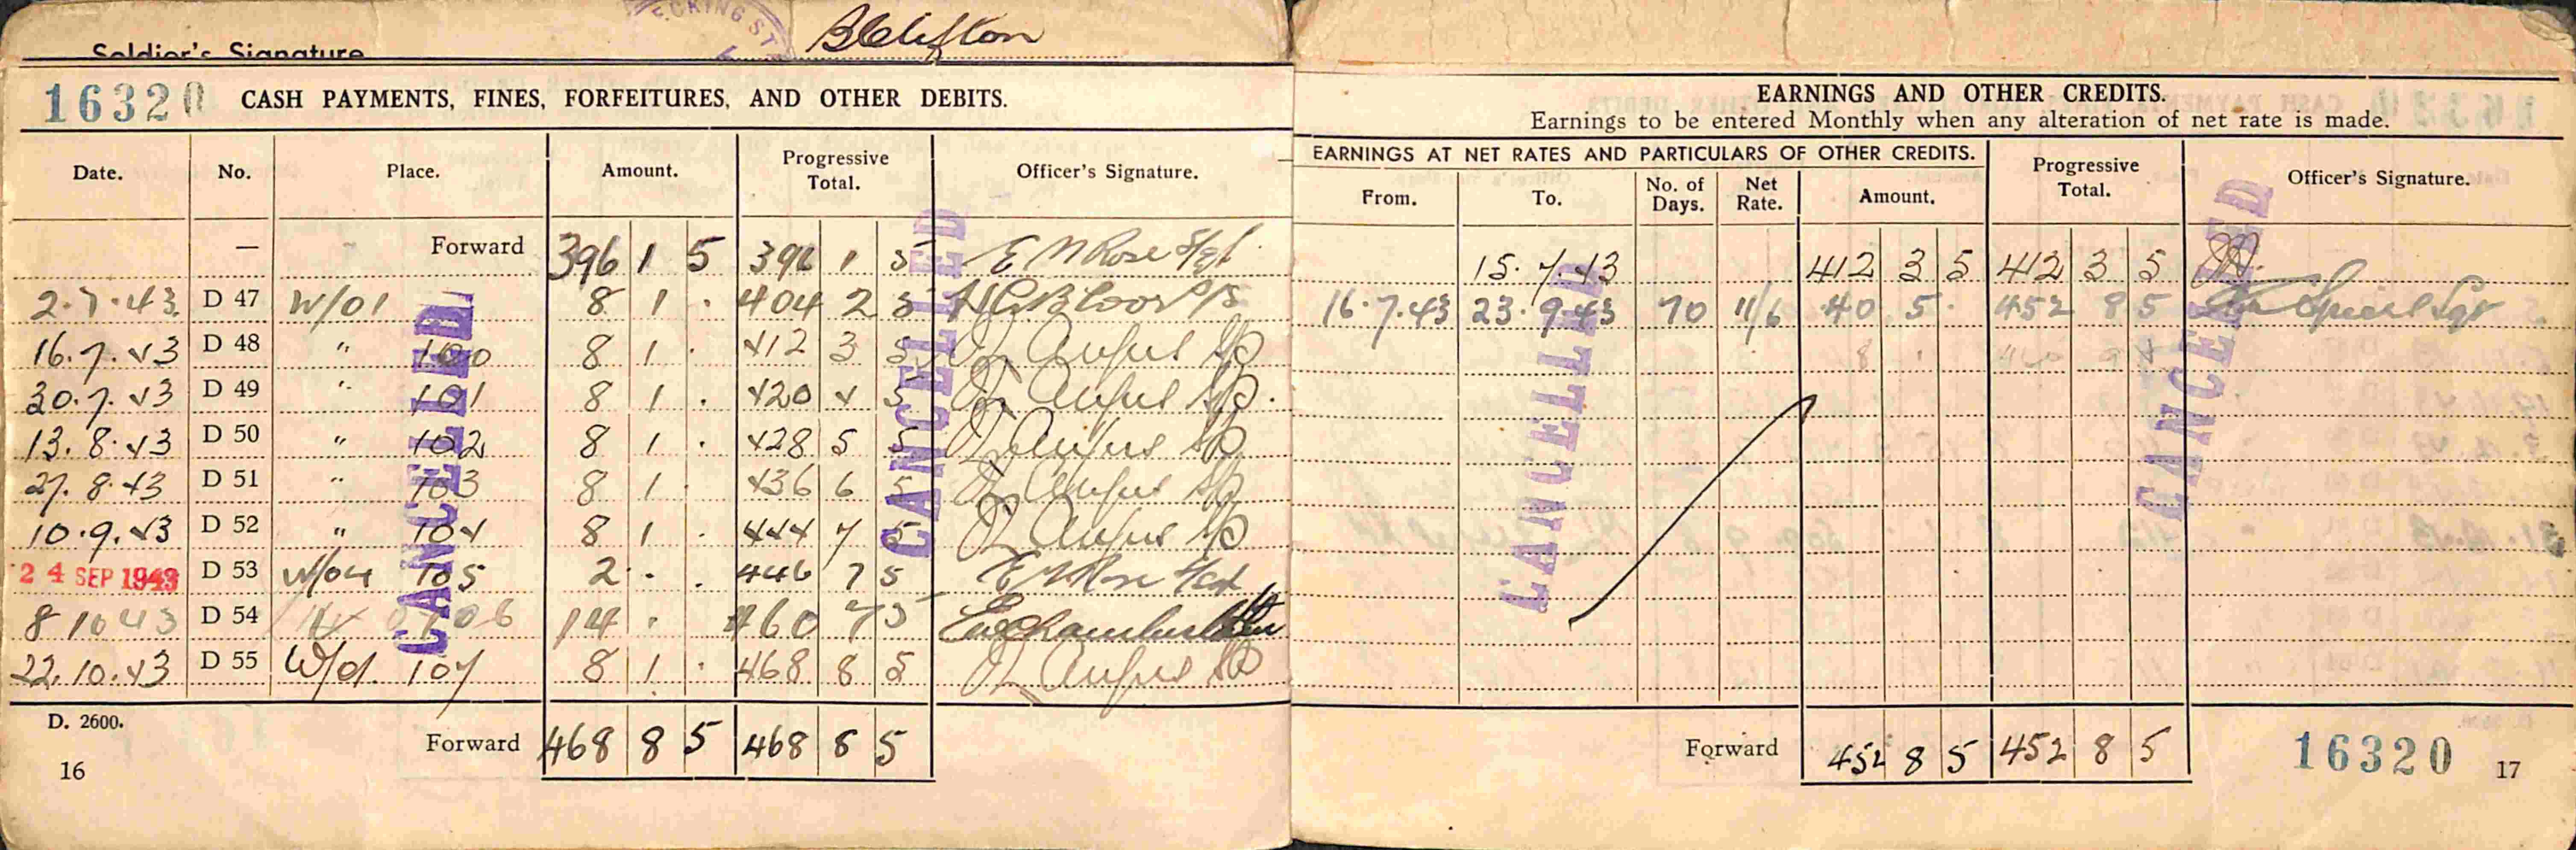 Soldier's Signature BClifton
16320 CASH PAYMENTS, FINES, FORFEITURES, AND OTHER DEBITS.
Date. No. Place. Amount. Progressive Total. Officer's Signature.
— Forward 396 1 5 396 1 5 E M Rose S/Sgt.
2.7.43 D 47 W/01 8 1 . 404 2 5
16.7.43 D 48 " 100 8 1 . 412 3 5
30.7.43 D 49 " 101 8 1 . 420 4 5
13.8.43 D 50 " 102 8 1 . 428 5 5
27.8.43 D 51 " 103 8 1 . 436 6 5
10.9.43 D 52 " 104 8 1 . 444 7 5
24 SEP 1943 D 53 W/04 105 2 . . 446 7 5 E M Rose
8 10 43 D 54 106 14 . 460 7 5
22.10.43 D 55 107 8 1 . 468 8 5
CANCELLED
CANCELLED
D. 2600.
Forward 468 8 5 468 8 5
16
EARNINGS AND OTHER CREDITS.
Earnings to be entered Monthly when any alteration of net rate is made.
EARNINGS AT NET RATES AND PARTICULARS OF OTHER CREDITS. Progressive Total. Officer's Signature.
From. To. No. of Days. Net Rate. Amount.
15.7.43 412 3 5 412 3 5
16.7.43 23.9.43 70 11/6 40 5 . 452 8 5
CANCELLED
CANCELLED
Forward 452 8 5 452 8 5
16320 17